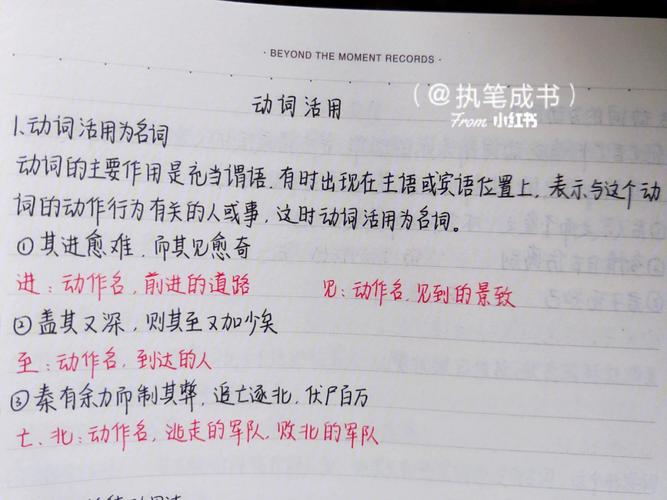 · BEYOND THE MOMENT RECORDS ·
(@执笔成书)
From 小红书
动词活用
1.动词活用为名词
动词的主要作用是充当谓语,有时出现在主语或宾语位置上,表示与这个动
词的动作行为有关的人或事,这时动词活用为名词。
①其进愈难,而其见愈奇
进:动作名,前进的道路 见:动作名,见到的景致
②盖其又深,则其至又加少矣
至:动作名,到达的人
③秦有余力而制其弊,追亡逐北,伏尸百万
亡、北:动作名,逃走的军队,败北的军队